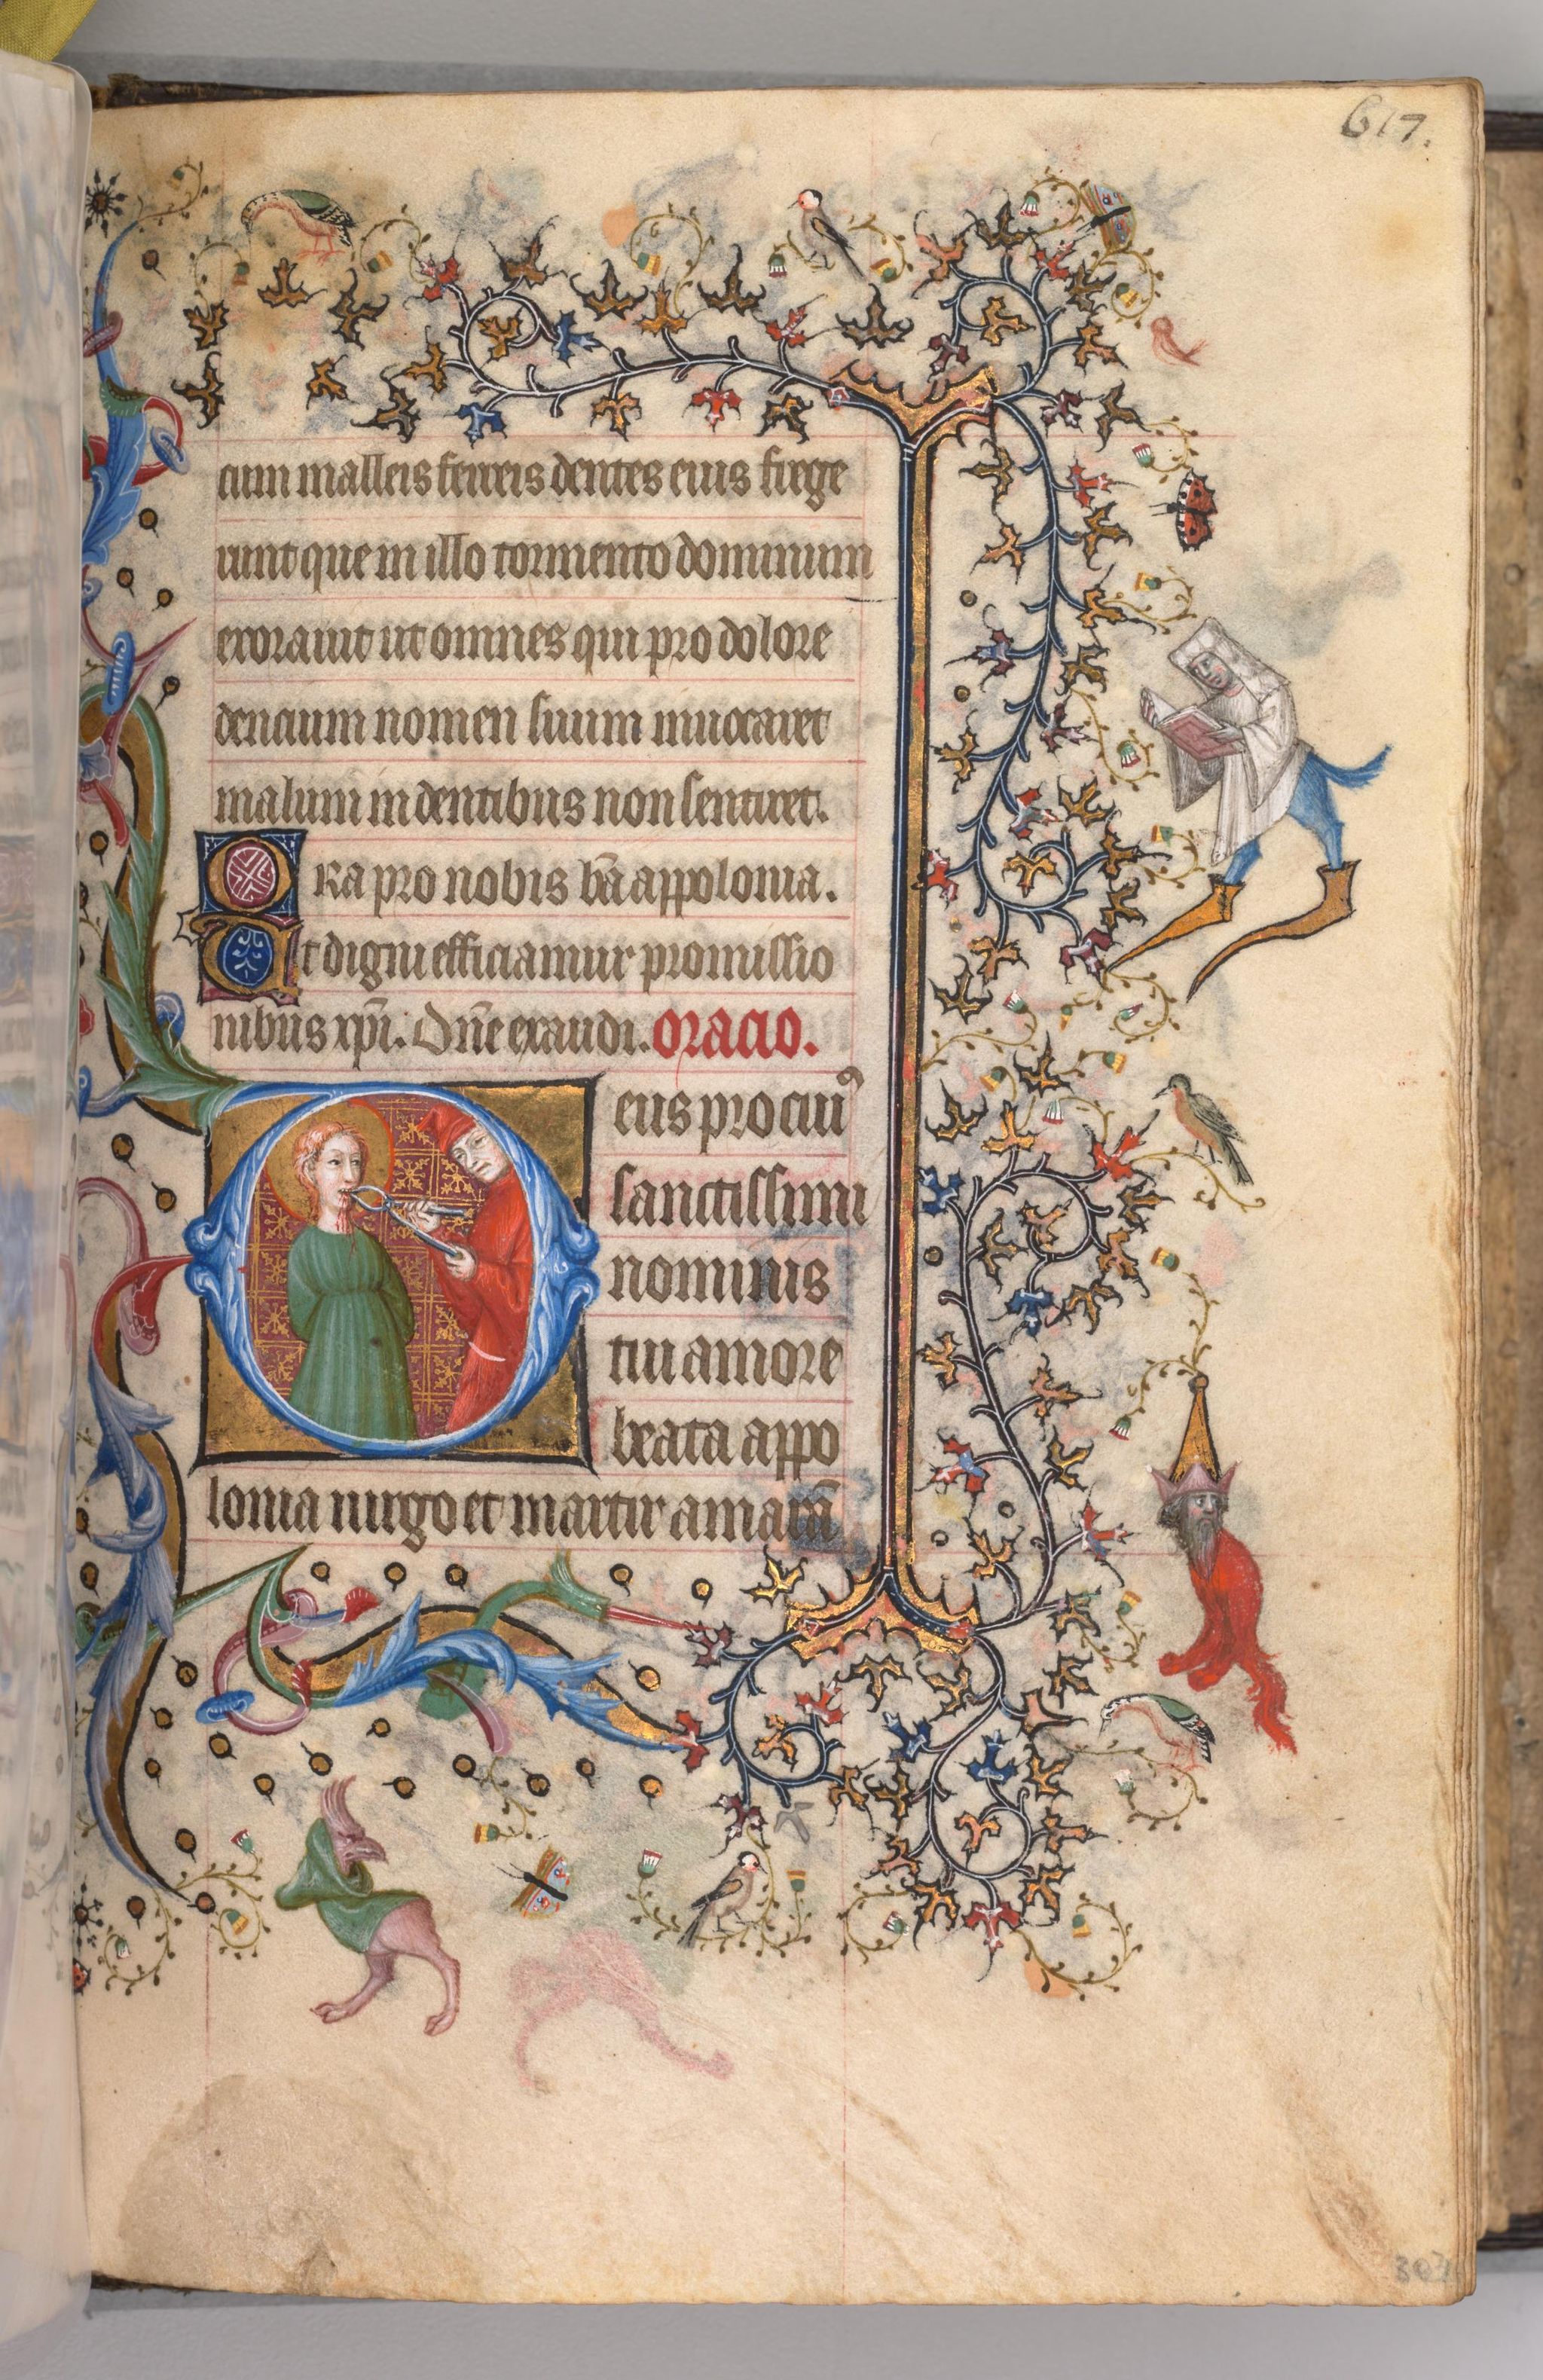 617.
cum malleis ferreis dentes eius frege
runt que in illo tormento dominum
exorauit ut omnes qui pro dolore
dencium nomen suum inuocaret
malum in dentibus non sentiret.
Ora pro nobis bā appolonia.
Ut digni efficiamur promissio
nibus xpī. Dñe exaudi. oracio.
Deus pro cuiꝰ
sanctissimi
nominis
tui amore
beata appo
lonia uirgo et martir amarā